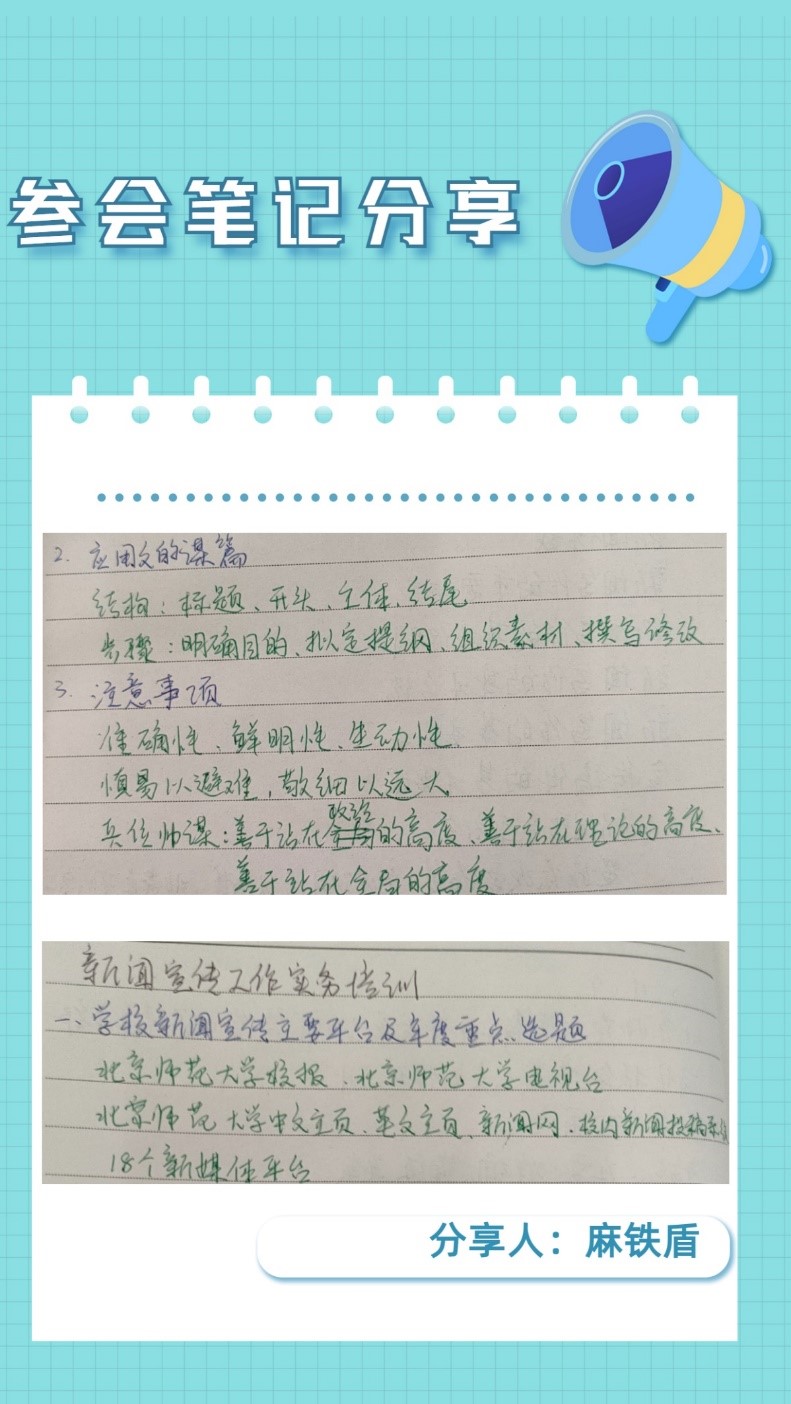 参会笔记分享
2. 应用文的谋篇
结构：标题、开头、主体、结尾
步骤：明确目的、拟定提纲、组织素材、撰写修改
3. 注意事项
准确性、鲜明性、生动性
慎易以避难，敬细以远大
兵位帅谋：善于站在政治的高度、善于站在理论的高度、
善于站在全局的高度
新闻宣传工作实务培训
一、学校新闻宣传主要平台及年度重点选题
北京师范大学校报、北京师范大学电视台
北京师范大学中文主页、英文主页、新闻网、校内新闻投稿系统
18个新媒体平台
分享人：麻铁盾